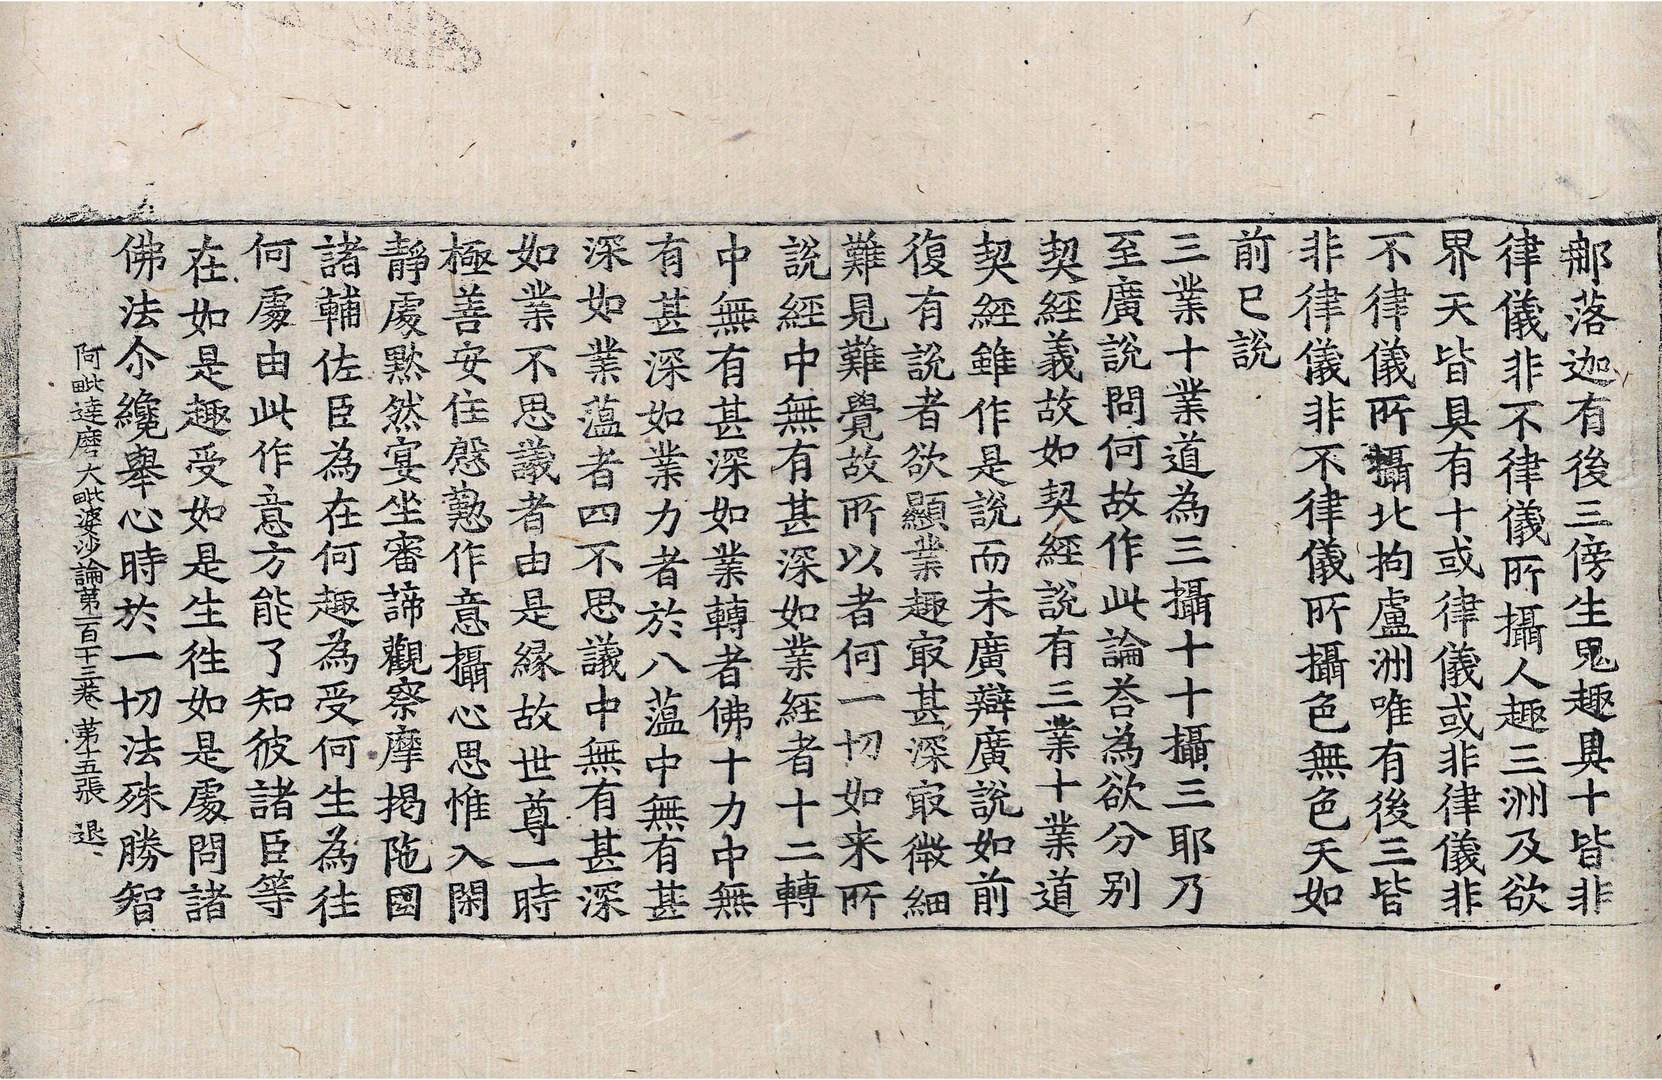 那落迦有後三傍生鬼趣具十皆非
律儀非不律儀所攝人趣三洲及欲
界天皆具有十或律儀或非律儀非
不律儀所攝北拘盧洲唯有後三皆
非律儀非不律儀所攝色無色天如
前已說
三業十業道為三攝十十攝三耶乃
至廣說問何故作此論荅為欲分別
契經義故如契經說有三業十業道
契經雖作是說而未廣辯廣說如前
復有說者欲顯業趣㝡甚深㝡微細
難見難覺故所以者何一切如来所
說經中無有甚深如業經者十二轉
中無有甚深如業轉者佛十力中無
有甚深如業力者於八蘊中無有甚
深如業蘊者四不思議中無有甚深
如業不思議者由是緣故世尊一時
極善安住慇懃作意攝心思惟入閑
靜處黙然宴坐審諦觀察摩揭陁國
諸輔佐臣為在何趣為受何生為往
何處由此作意方能了知彼諸臣等
在如是趣受如是生徃如是處問諸
佛法尒纔舉心時於一切法殊勝智
阿毗達磨大毗婆沙論第一百十三卷 第十五張 退